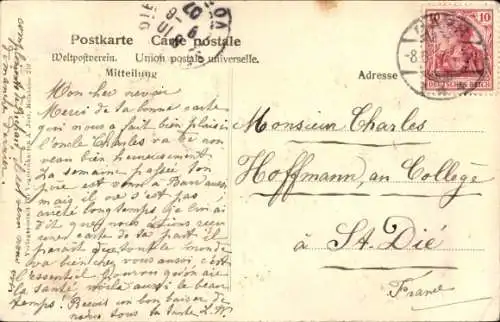 Postkarte Carte postale
Weltpostverein. Union postale universelle.
Mitteilung
Adresse
10 10
DEUTSCHES REICH
Mon cher neveu
Merci de ta bonne carte
qui nous a fait bien plaisir
l'oncle Charles va de nou
veau bien heureusement
La semaine passée ton
est venu à Barr aussi
mais il ne s'est pas
arrêté longtemps je lui ai
dit que nous
une carte de ta part. il
parait que tout le monde
va bien chez vous aussi c'est
l'essentiel Pourvu qu'on aie
la santé voilà aussi le beau
temps! Reçois un bon baiser de
nous tous ta tante L.W.
Monsieur Charles
Hoffmann, an Collège
à St. Dié
France